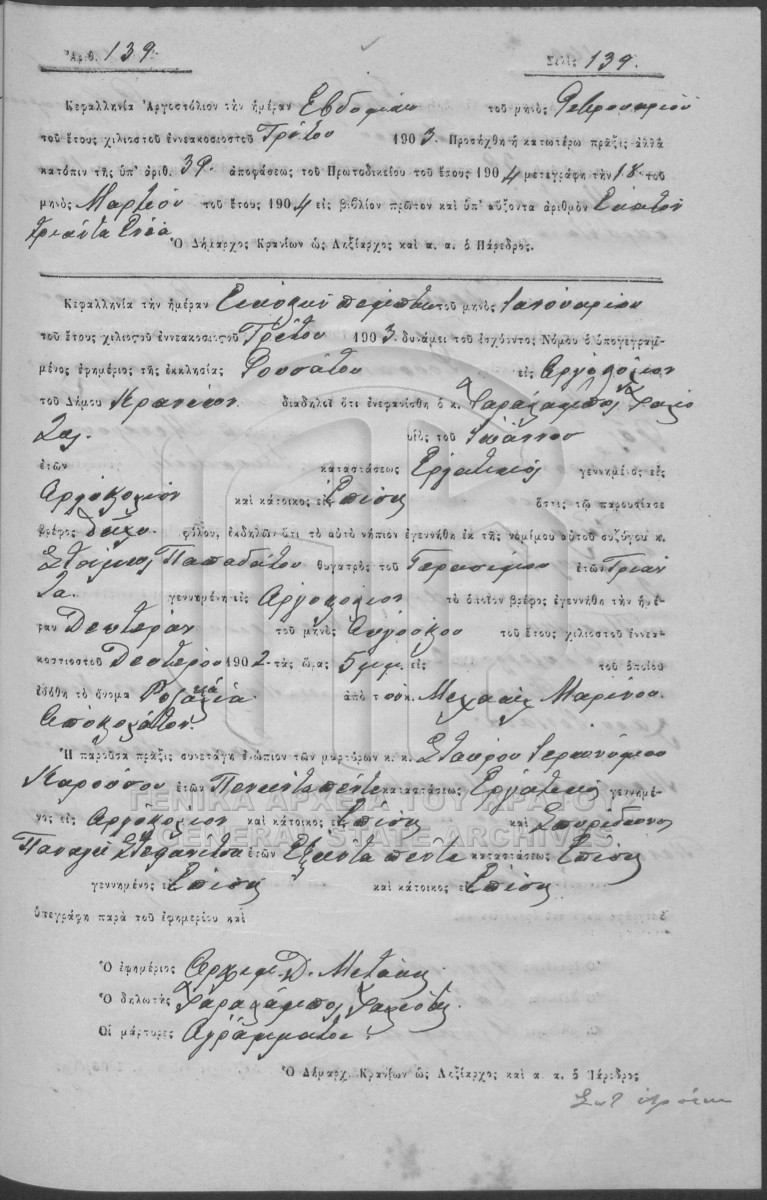 Ἀριθ. 139. Σελὶς 139.
Κεφαλληνία Ἀργοστόλιον τὴν ἡμέραν Εβδόμην τοῦ μηνὸς Φεβρουαρίου
τοῦ ἔτους χιλιοστοῦ ἐννεακοσιοστοῦ Τρίτου 1903. Προσήχθη ἡ κατωτέρω πρᾶξις ἀλλὰ
κατόπιν τῆς ὑπ' ἀριθ. 39. ἀποφάσεως τοῦ Πρωτοδικείου τοῦ ἔτους 1904 μετεγράφη τὴν 18 τοῦ
μηνὸς Μαρτίου τοῦ ἔτους 1904 εἰς βιβλίον πρῶτον καὶ ὑπ' αὔξοντα ἀριθμὸν Εκατὸν
τριάντα Εννέα
Ὁ Δήμαρχος Κρανίων ὡς Ληξίαρχος καὶ α. α. ὁ Πάρεδρος.
Κεφαλληνία τὴν ἡμέραν Εικοστὴν πέμπτην τοῦ μηνὸς Ιανουαρίου
τοῦ ἔτους χιλιοστοῦ ἐννεακοσιοστοῦ Τρίτου 1903. δυνάμει τοῦ ἰσχύοντος Νόμου ὁ ὑπογεγραμ-
μένος ἐφημέριος τῆς ἐκκλησίας εἰς Αργοστόλιον
τοῦ Δήμου Κρανίων διαδηλοῖ ὅτι ἐνεφανίσθη ὁ κ. Χαράλαμπος
υἱὸς τοῦ Ιωάννου
ἐτῶν καταστάσεως Εργατικός γεννημένος εἰς
Αργοστόλιον καὶ κάτοικος εἰς Επίσης ὅστις τῷ παρουσίασε
βρέφος θήλυ φύλου, ἐκδηλῶν ὅτι τὸ αὐτὸ νήπιον ἐγεννήθη ἐκ τῆς νομίμου αὐτοῦ συζύγου κ.
Παπαδάτου θυγατρὸς τοῦ Γερασίμου ἐτῶν Τριάν
τα. γεννημένη εἰς Αργοστόλιον τὸ ὁποῖον βρέφος ἐγεννήθη τὴν ἡμέ-
ραν Δευτέραν τοῦ μηνὸς Αυγούστου τοῦ ἔτους χιλιοστοῦ ἐννεα-
κοσιοστοῦ Δευτέρου 1902 τὰς ὥρας 5 μμ. εἰς τοῦ ὁποίου
ἐδόθη τὸ ὄνομα ἀπὸ τοὺς κ. Μιχαὴλ Μαρίνου
Αποστολάτον.
Ἡ παροῦσα πρᾶξις συνετάγη ἐνώπιον τῶν μαρτύρων κ. κ. Σταύρου Ιερωνύμου
Καρούσου ἐτῶν Πενήντα πέντε καταστάσεως Εργατικός γεννημέ-
νος εἰς Αργοστόλιον καὶ κάτοικος εἰς Επίσης καὶ Σπυρίδωνος
Παναγῆ Στεφανίτσα ἐτῶν Εξήντα πέντε καταστάσεως Επίσης
γεννημένος εἰς Επίσης καὶ κάτοικος εἰς Επίσης
ὑπεγράφη παρὰ τοῦ ἐφημερίου καὶ
Ὁ ἐφημέριος Αρχιμ. Δ.
Ὁ δηλωτὴς Χαράλαμπος
Οἱ μάρτυρες Αγράμματοι
Ὁ Δήμαρχ. Κρανίων ὡς Ληξίαρχος καὶ α. α. ὁ Πάρεδρος
ΓΕΝΙΚΑ ΑΡΧΕΙΑ ΤΟΥ ΚΡΑΤΟΥΣ
GENERAL STATE ARCHIVES